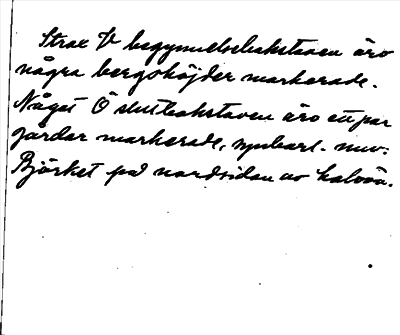 Strax V begynnelsebokstaven äro
några bergshöjder markerade.
Något Ö slutbokstaven äro ett par
gårdar markerade, synbarl. nuv.
Björket på nordsidan av halvön.